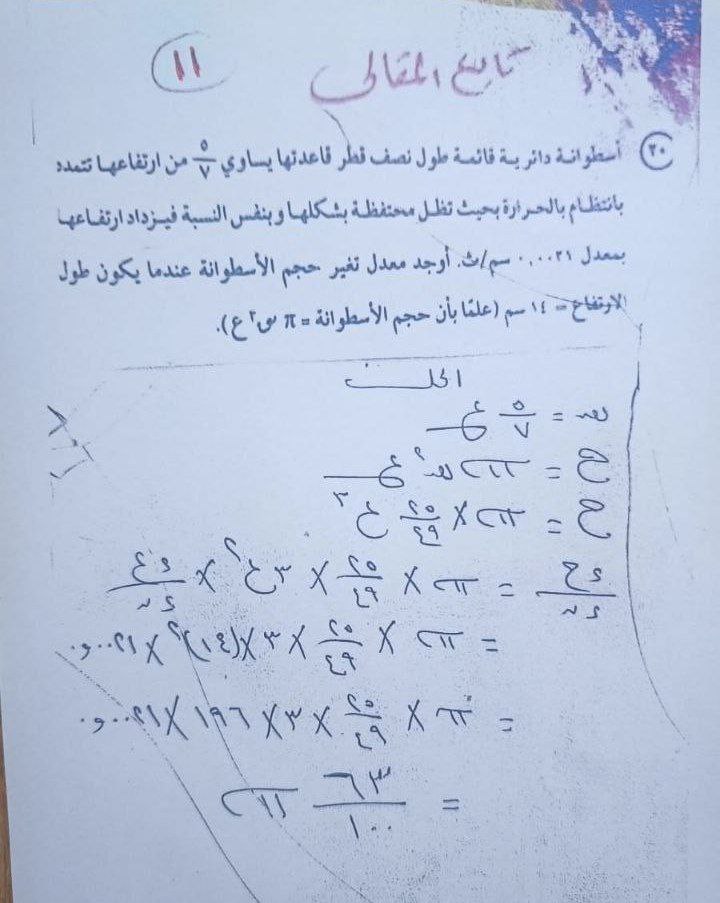 تابع المقالى
١١
٢٠ أسطوانة دائرية قائمة طول نصف قطر قاعدتها يساوي ٥/٧ من ارتفاعها تتمدد
بانتظام بالحرارة بحيث تظل محتفظة بشكلها وبنفس النسبة فيزداد ارتفاعها
بمعدل ٠,٠٠٢١ سم/ث. أوجد معدل تغير حجم الأسطوانة عندما يكون طول
الارتفاع = ١٤ سم (علمًا بأن حجم الأسطوانة = π س² ع).
الحل
نق = ٥/٧ ع
ح = π نق² ع
ح = π × ٢٥/٤٩ ع³
ءح/ءن = π × ٢٥/٤٩ × ٣ع² × ءع/ءن
= π × ٢٥/٤٩ × ٣ × (١٤)² × ٠,٠٠٢١
= π × ٢٥/٤٩ × ٣ × ١٩٦ × ٠,٠٠٢١
= ٦٣/١٠٠ π